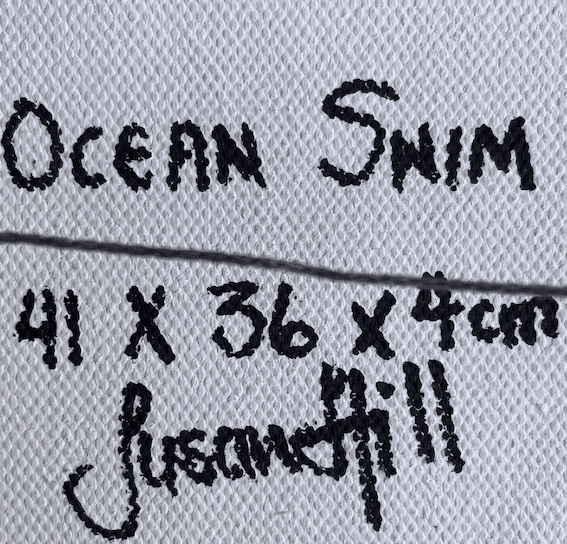 OCEAN SWIM
41 X 36 X 4cm
Susan Hill